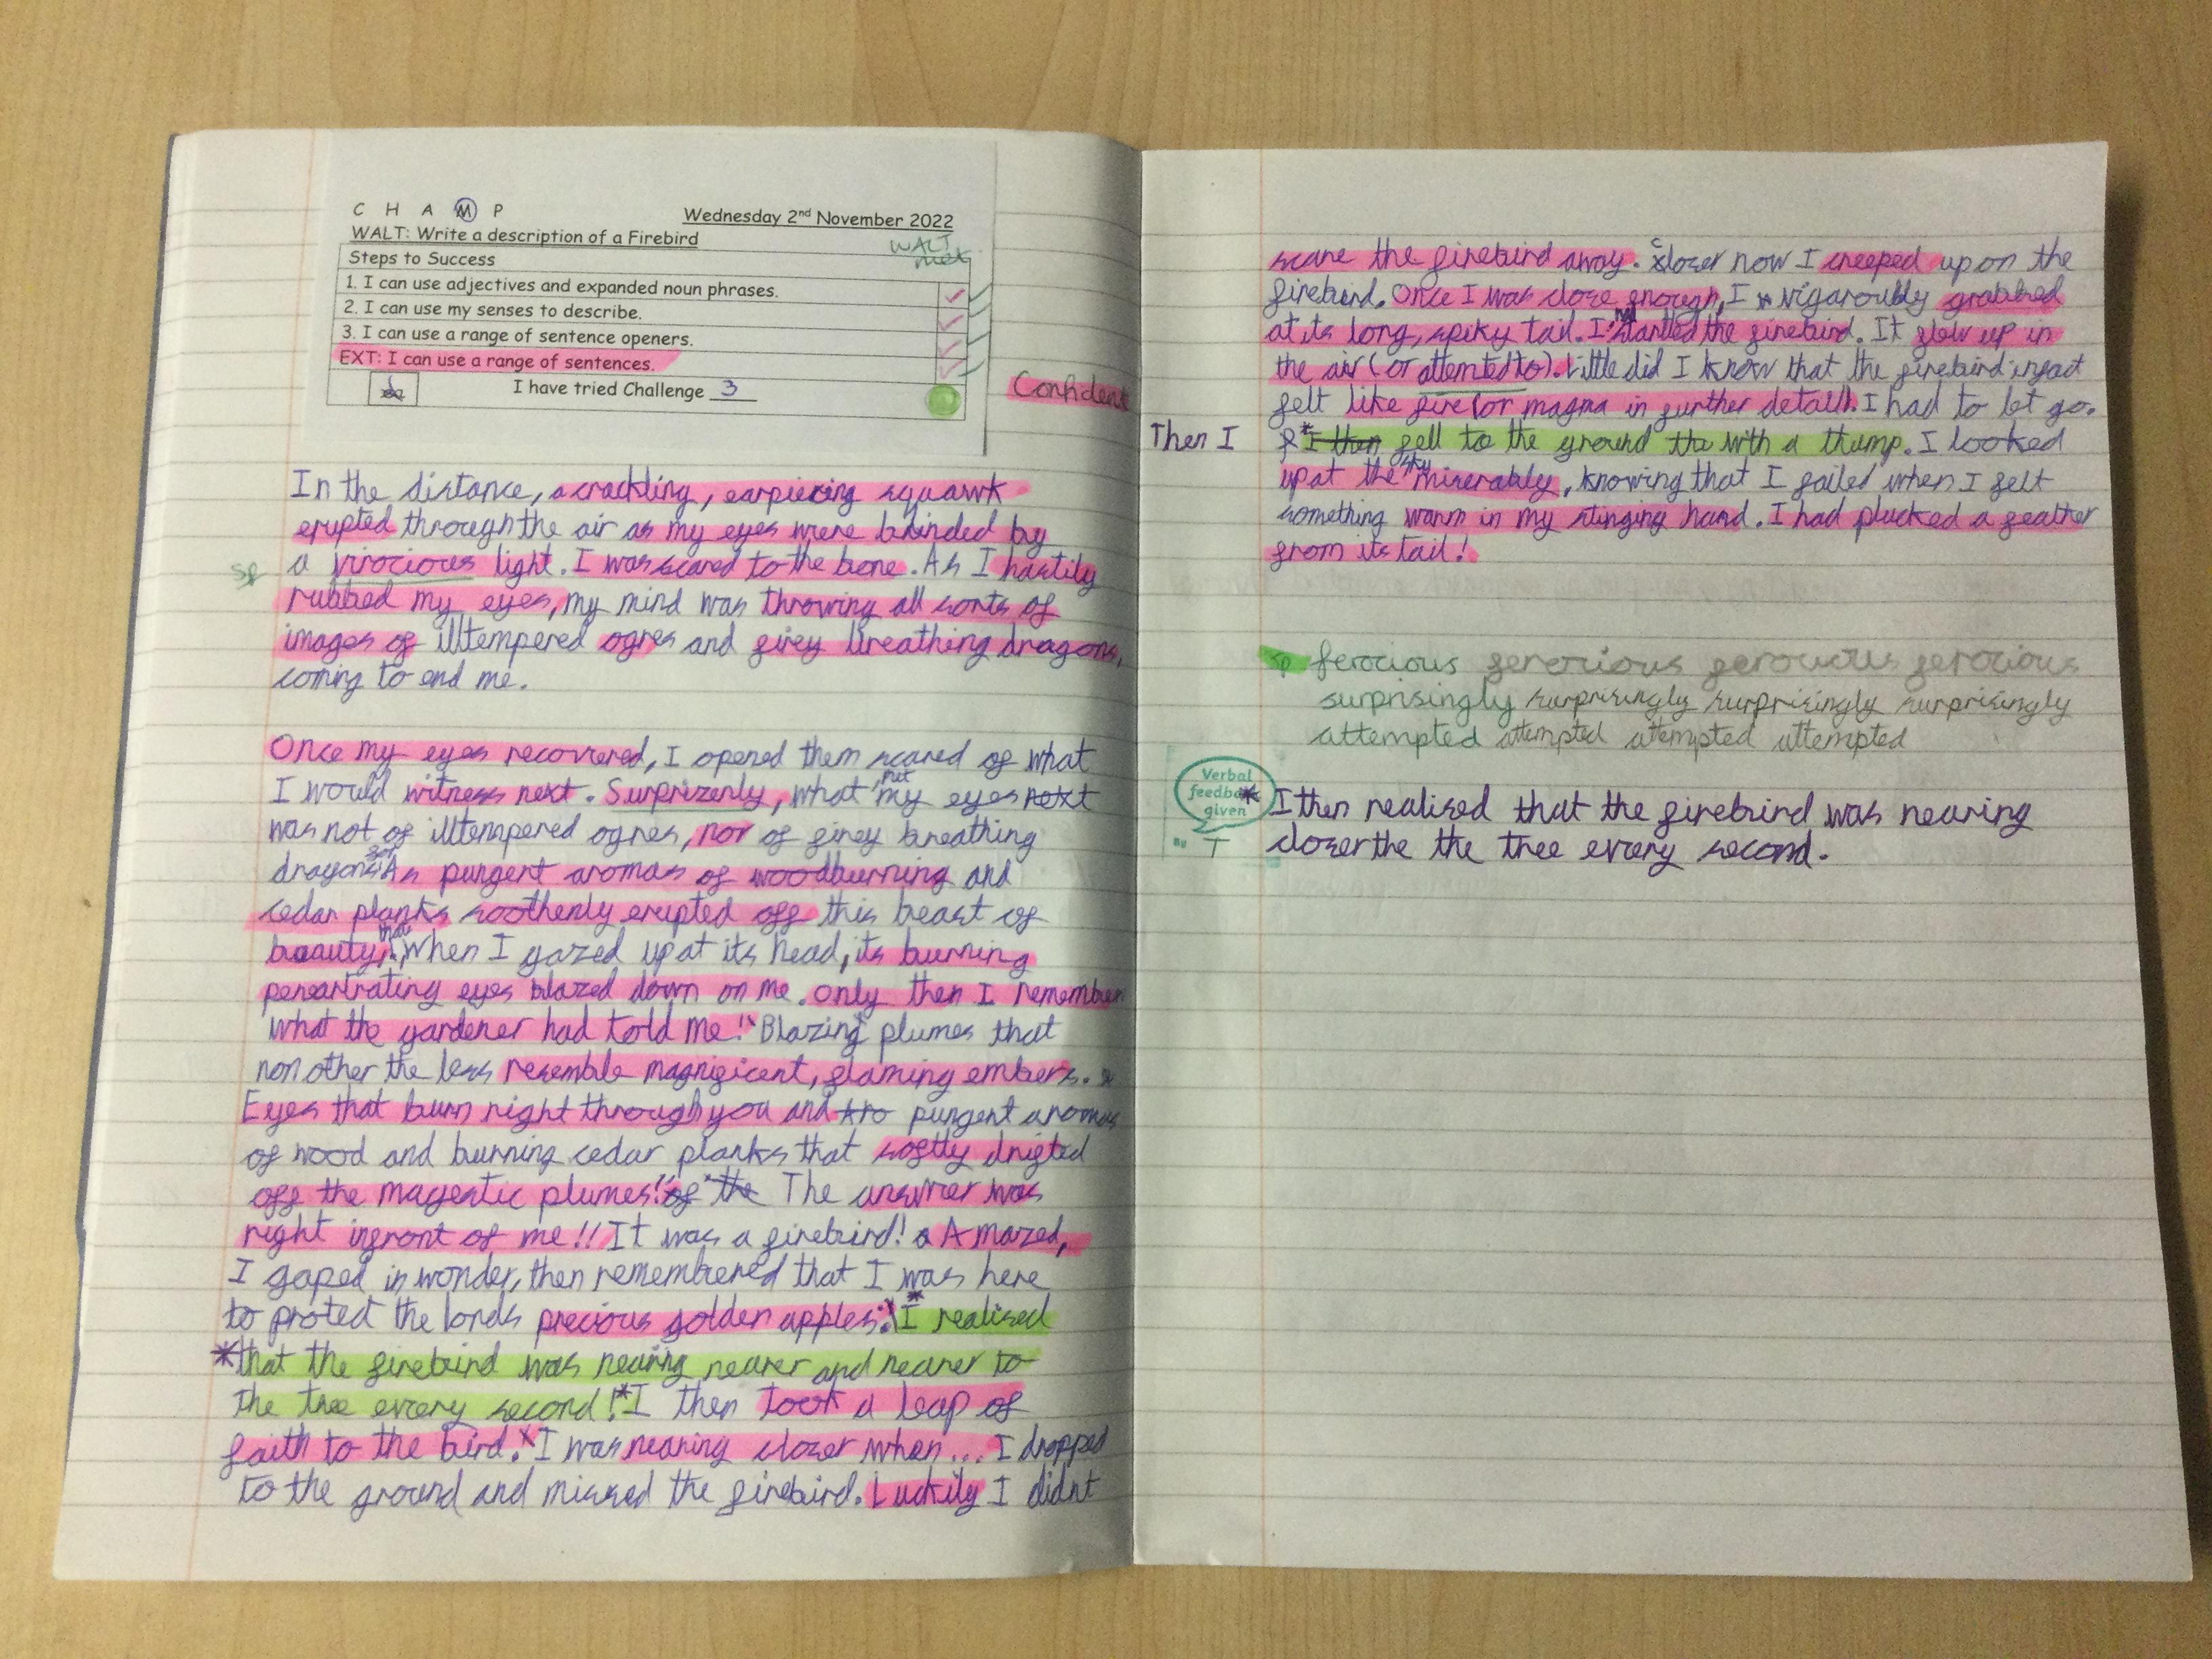 C H A M P
Wednesday 2nd November 2022
WALT: Write a description of a Firebird
WALT
met
Steps to Success
1. I can use adjectives and expanded noun phrases.
2. I can use my senses to describe.
3. I can use a range of sentence openers.
EXT: I can use a range of sentences.
I have tried Challenge 3
Confident
In the distance, a crackling, earpiercing squawk
erupted through the air as my eyes were blinded by
sp
a virocious light. I was scared to the bone. As I hastily
rubbed my eyes, my mind was throwing all sorts of
images of illtempered ogres and firey breathing dragons,
coming to end me.
Once my eyes recovered, I opened them scared of what
I would witness next. Surprizenly, what met my eyes next
was not of illtempered ogres, nor of firey breathing
dragons, for As pungent aromas of woodburning and
cedar planks soothenly erupted off this beast of
beauty, that When I gazed up at its head, its burning
peneartrating eyes blazed down on me. Only then I remember
what the gardener had told me! "Blazing plumes that
non other the less resemble magnificent, flaming embers.
Eyes that burn right through you and pungent aromas
of wood and burning cedar planks that softly drifted
off the magestic plumes!" of the The answer was
right infront of me!! It was a firebird! Amazed,
I gaped in wonder, then remembered that I was here
to protect the lords precious golden apples. *I realised
*that the firebird was nearing nearer and nearer to
the tree every second!* I then took a leap of
faith to the bird. I was nearing closer when... I dropped
to the ground and missed the firebird. Luckily I didnt
scare the firebird away. closer now I creeped up on the
firebird. Once I was close enough, I vigaroubly grabbed
at its long, spiky tail. I startled the firebird. It flew up in
the air (or attemted to). Little did I know that the firebird infact
felt like fire (or magma in further detail). I had to let go.
Then I
* I then fell to the ground with a thump. I looked
up at the sky miserably, knowing that I failed when I felt
something warm in my stinging hand. I had plucked a feather
from its tail!
sp ferocious ferocious ferocious ferocious
surprisingly surprisingly surprisingly surprisingly
attempted attempted attempted attempted
Verbal
feedback
given
T
* I then realised that the firebird was nearing
closer the the tree every second.